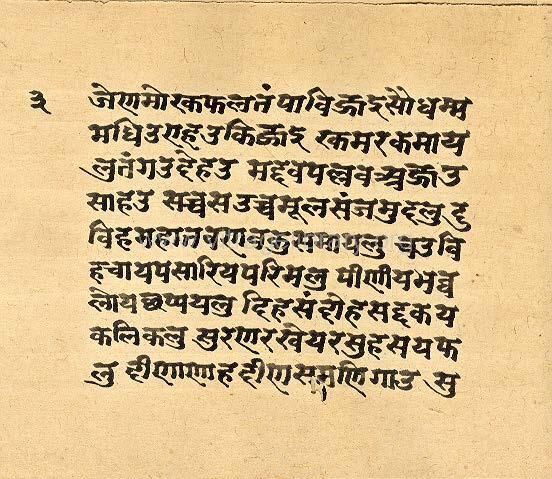 ३ जेणमोरकफलतंपाविज्जइसोधम्म
मधिउएहउकिज्जइ रकमरकमाय
लुतंगउदेहउ मद्दवपल्लवअज्जउ
साहउ सच्चसउच्चमूलसंजमुदलु दु
विहमहातवणवकुसुमायलु चउवि
हचायपसारियपरिमलु पीणीयभव्व
लोयछप्पयलु दिहसंदोहसद्दकय
कलिकलु सुरणरखेयरसुहसयफ
लु दीणाणहदीणसमणिगाउ सु